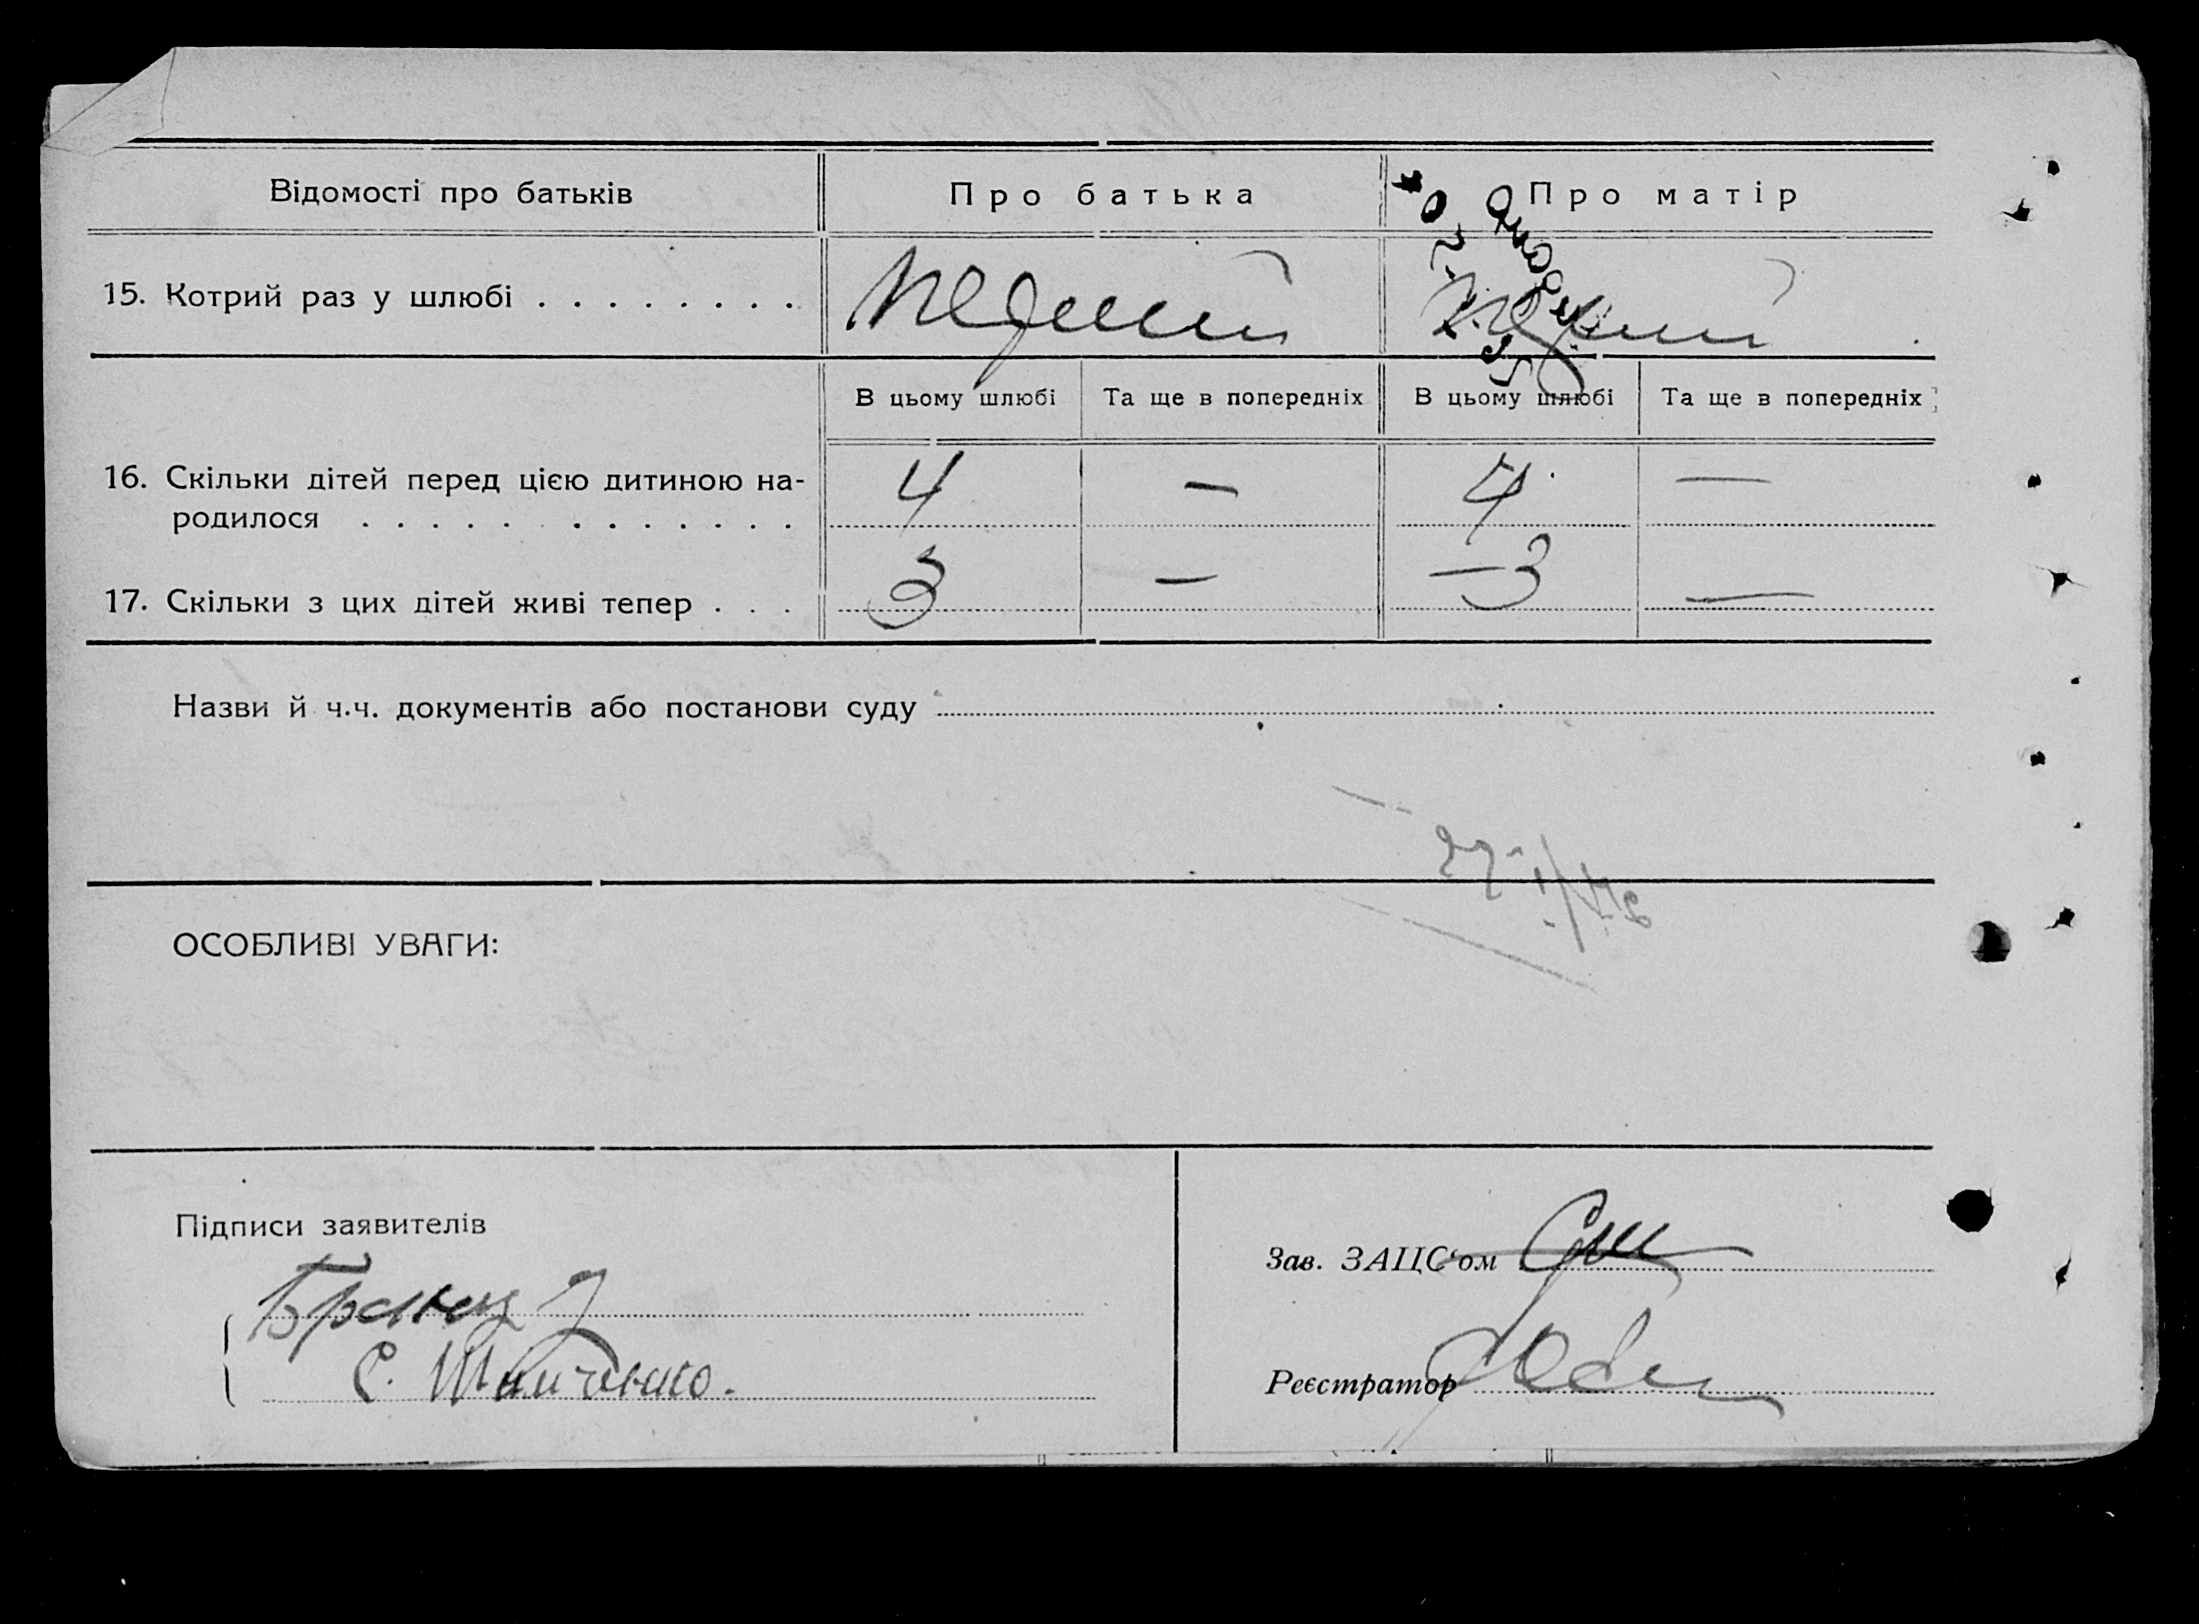 Відомості про батьків
Про батька
Про матір
15. Котрий раз у шлюбі . . . . . . . .
В цьому шлюбі
Та ще в попередніх
В цьому шлюбі
Та ще в попередніх
16. Скільки дітей перед цією дитиною на-
родилося . . . . . . . . . . . . .
4 — 4 —
17. Скільки з цих дітей живі тепер . . .
3 — — 3 —
Назви й ч.ч. документів або постанови суду
ОСОБЛИВІ УВАГИ:
Підписи заявителів
С.
Зав. ЗАЦС‘ом
Реєстратор